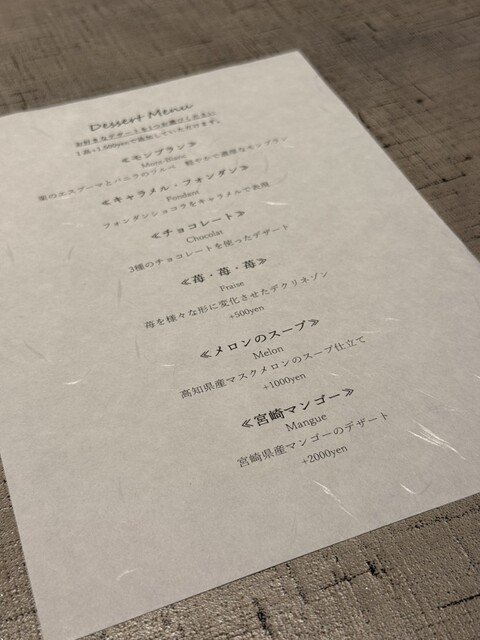 Dessert Menu
お好きなデザートを1つお選びください
1品+1,500yenで追加していただけます。
≪モンブラン≫
Mont Blanc
栗のエスプーマとバニラのソルベ　軽やかで濃厚なモンブラン
≪キャラメル・フォンダン≫
Fondant
フォンダンショコラをキャラメルで表現
≪チョコレート≫
Chocolat
3種のチョコレートを使ったデザート
≪苺・苺・苺≫
Fraise
苺を様々な形に変化させたデクリネゾン
+500yen
≪メロンのスープ≫
Melon
高知県産マスクメロンのスープ仕立て
+1000yen
≪宮崎マンゴー≫
Mangue
宮崎県産マンゴーのデザート
+2000yen